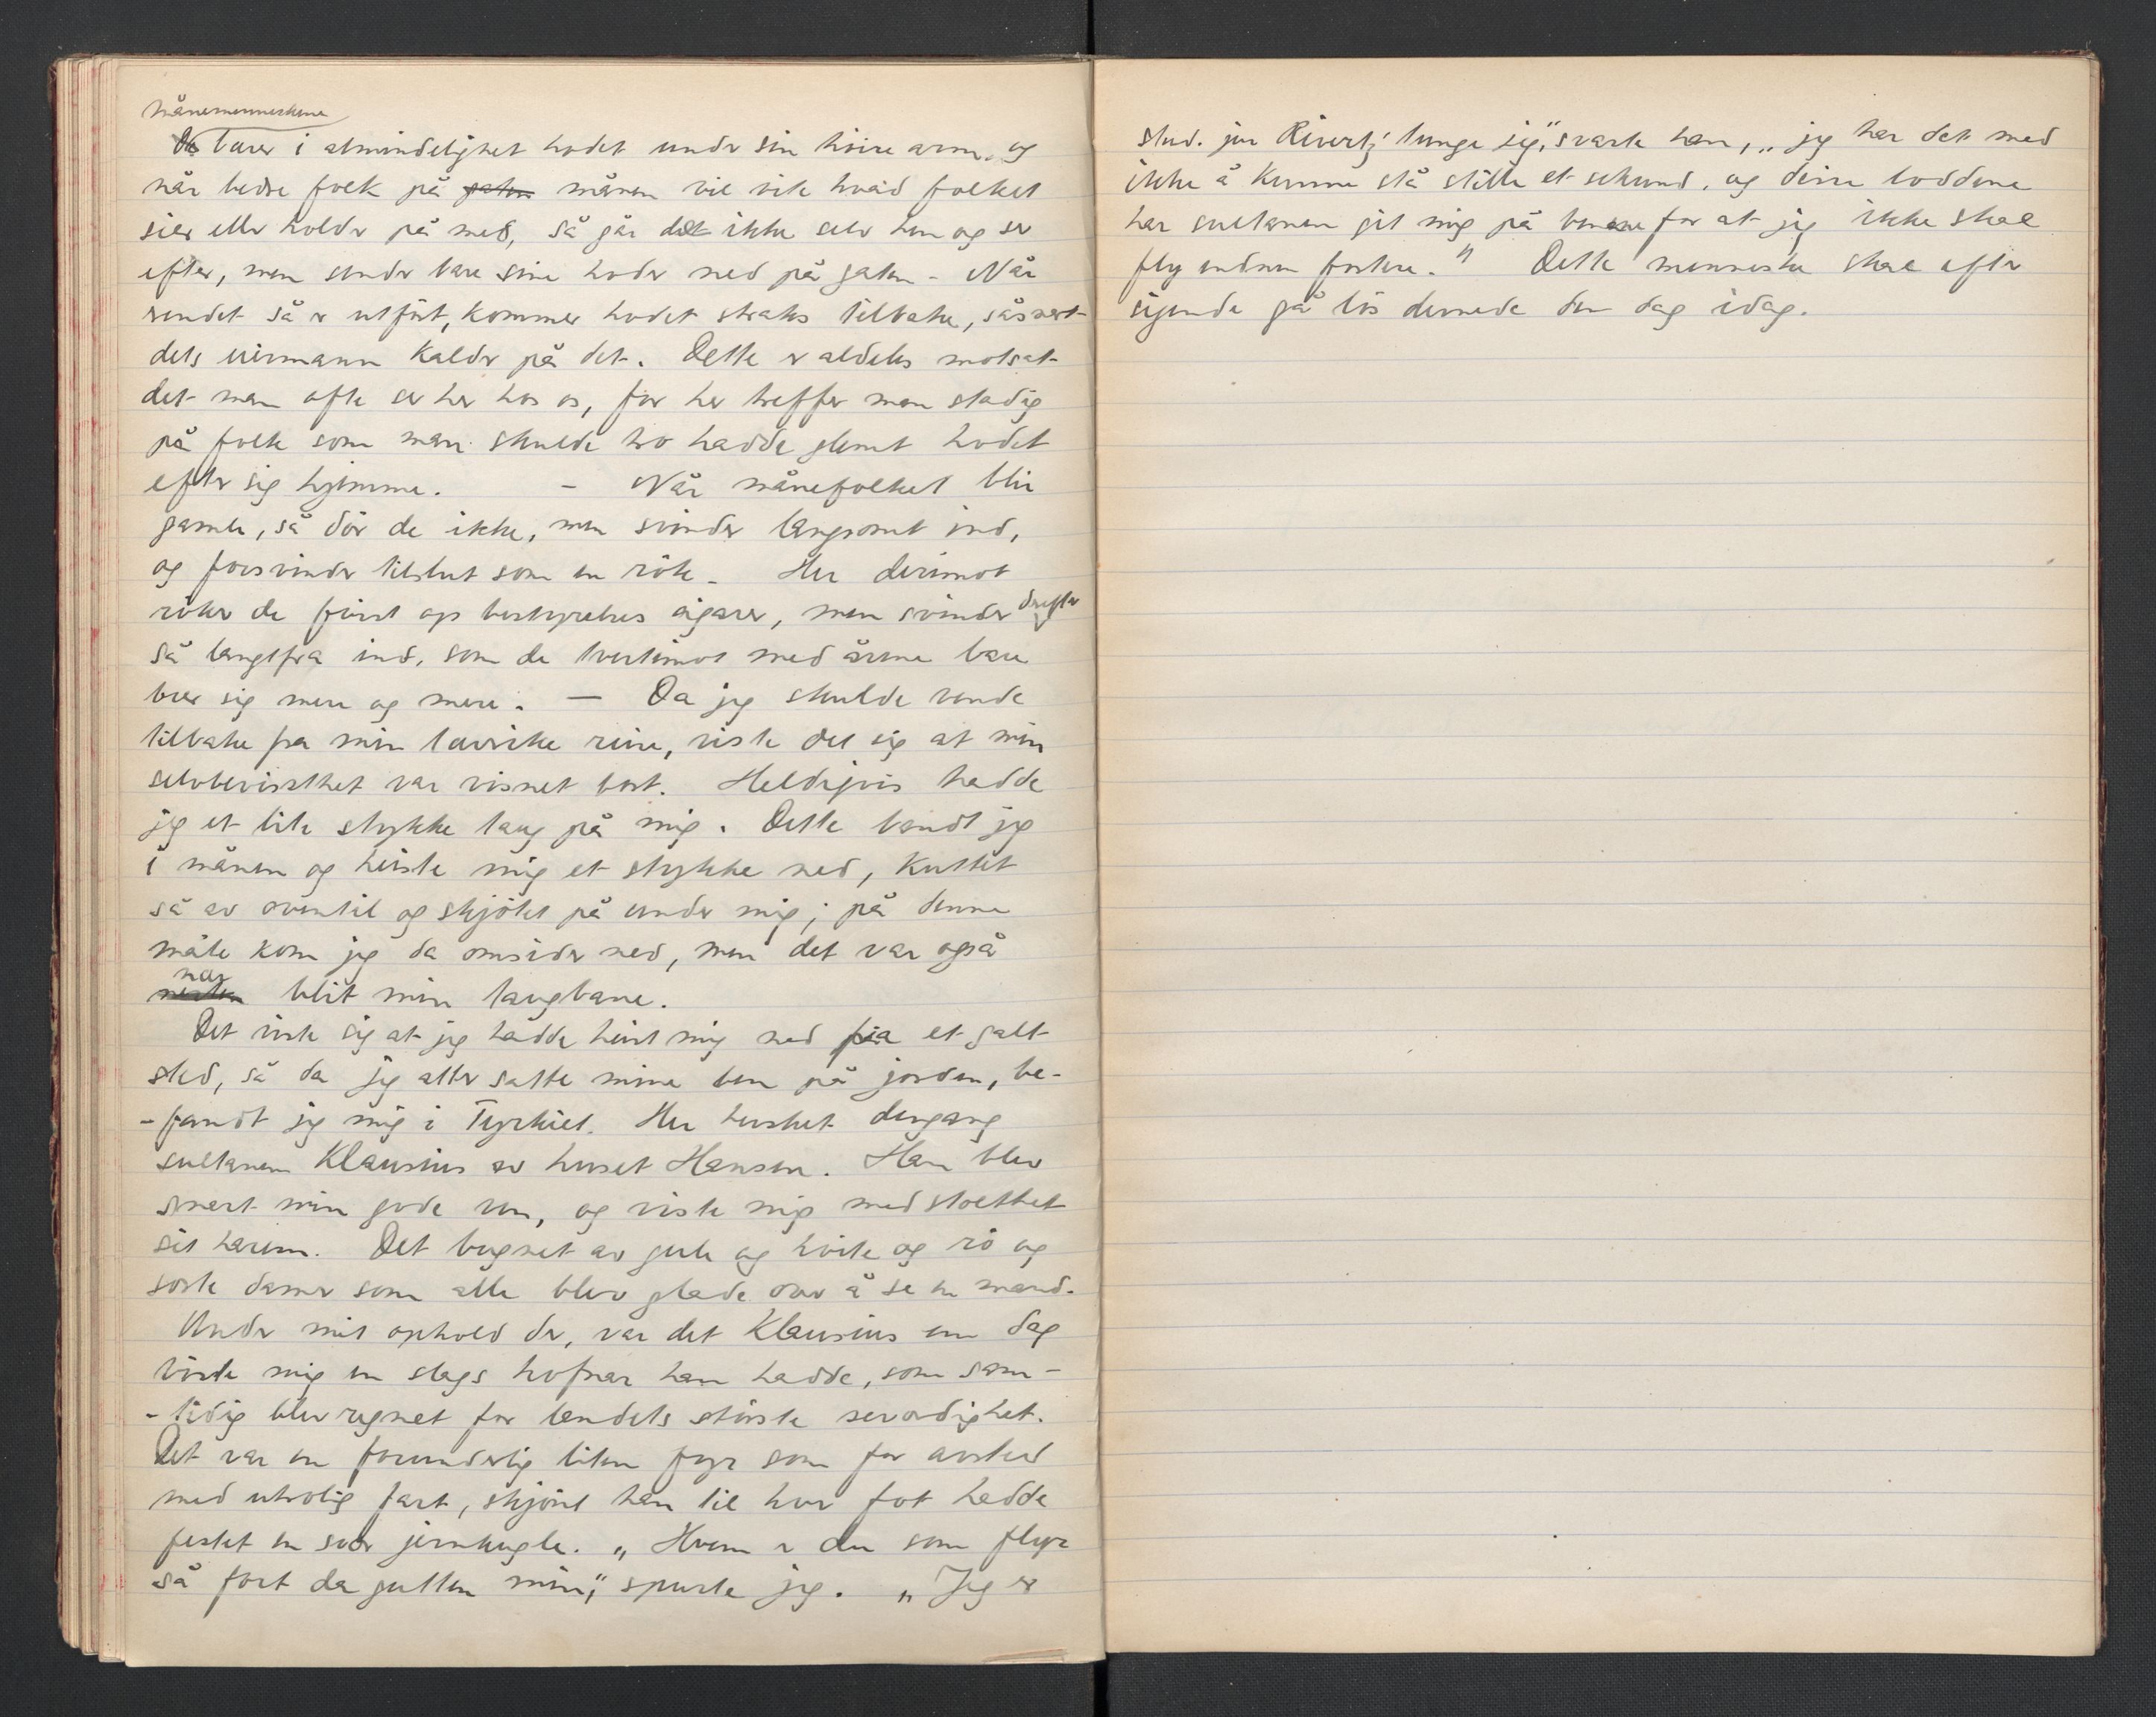 Månemenneskene
De bærer i almindelighet hodet under sin høire arm, og
når bedre folk på gaten månen vil vite hvad folket
sier eller holder på med, så går det ikke selv hen og ser
efter, men sender bare sine hoder ned på gaten - Når
rendet så er utført, kommer hodet straks tilbake, såsnart
dets eiermann kalder på det. Dette er aldeles motsat
det man ofte ser her hos os, for her treffer man stadig
på folk som man skulde tro hadde glemt hodet
efter sig hjemme. - Når månefolket blir
gamle, så dör de ikke, men svinder langsomt ind,
og forsvinder tilslut som en rök - Her derimot
röker de först op bestyrelses sigarer, men svinder derefter
så langtfra ind, som de tvertimot med årene bare
brer sig mere og mere. — Da jeg skulde vende
tilbake fra min luvslitte reise, viste det sig at min
selvbevissthet var visnet bort. Heldigvis hadde
jeg et lite stykke taug på mig. Dette bandt jeg
i månen og heiste mig et stykke ned, kuttet
så av oventil og skjötet på under mig; på denne
måte kom jeg da omsider ned, men det var også
nesten nær blit min taugbane.
Det viste sig at jeg hadde heist mig ned fra et galt
sted, så da jeg atter satte mine ben på jorden, be-
-fandt jeg mig i Tyrkiet. Her hersket dengang
sultanen Klausius av huset Hansen. Han blev
snart min gode ven, og viste mig med stolthet
sit harem. Det bugnet av gule og hvite og rö og
sorte damer som alle blev glade over å se en mand.
Under mit ophold der, var det Klausius en dag
viste mig en slags hofnar han hadde, som sam-
-tidig blev regnet for landets störste severdighet.
Det var en forunderlig liten fyr som for avsted
med utrolig fart, skjönt han til hver fot hadde
festet en svær jernkugle. „Hvem er du som flyr
så fort da gutten min", spurte jeg. „Jeg er
stud. jur Rivertz' lunge jeg," svarte han, „jeg har det med
ikke å kunne stå stille et sekund, og disse loddene
har sultanen git mig på benene for at jeg ikke skal
fly endnu fortere." Dette menneske skal efter
sigende gå lös dernede den dag idag.